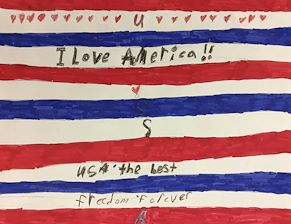 U
I Love America!!
S
USA the best
freedom forever
A